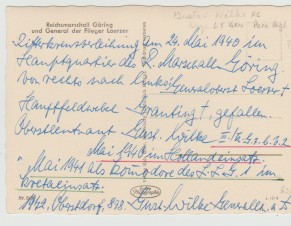 Reichsmarschall Göring
und General der Flieger Loerzer
Gustav Wilke
Ritterkreuzverleihung am 24. Mai 1940 im
Hauptquartier des R. Marschalls Göring
von rechts nach links: Generaloberst Loerzer †
Hauptfeldwebel Grauting †, gefallen.
Oberstleutnant Gust. Wilke
Mai 1940 im Hollandeinsatz.
"Mai 1941 als Kommodore des 1 im
Kretaeinsatz.
Oberstdorf, Gust. Wilke Generallt. a. D.